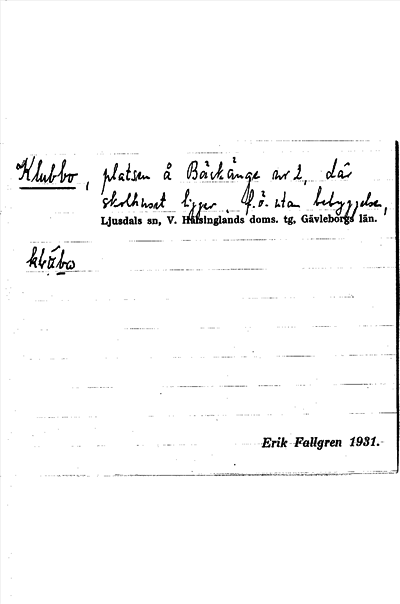 Klubbo, platsen å Bäckänge nr 2, där
skolhuset ligger, f. ö. utan bebyggelse,
Ljusdals sn, V. Hälsinglands doms. tg, Gävleborgs län.
Erik Fallgren 1931.